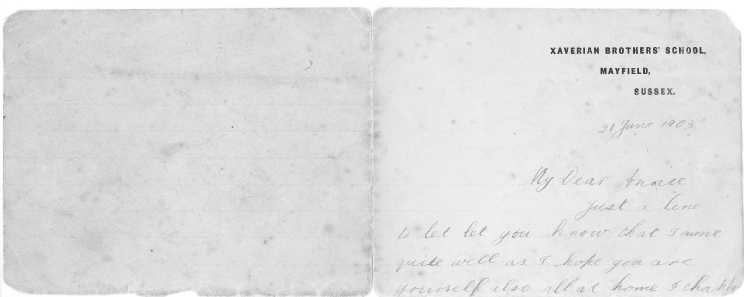 XAVERIAN BROTHERS' SCHOOL,
MAYFIELD,
SUSSEX.
21 June 1903
My Dear Annie
just a line
to let let you know that I am
quite well as I hope you are
yourself also all at home I